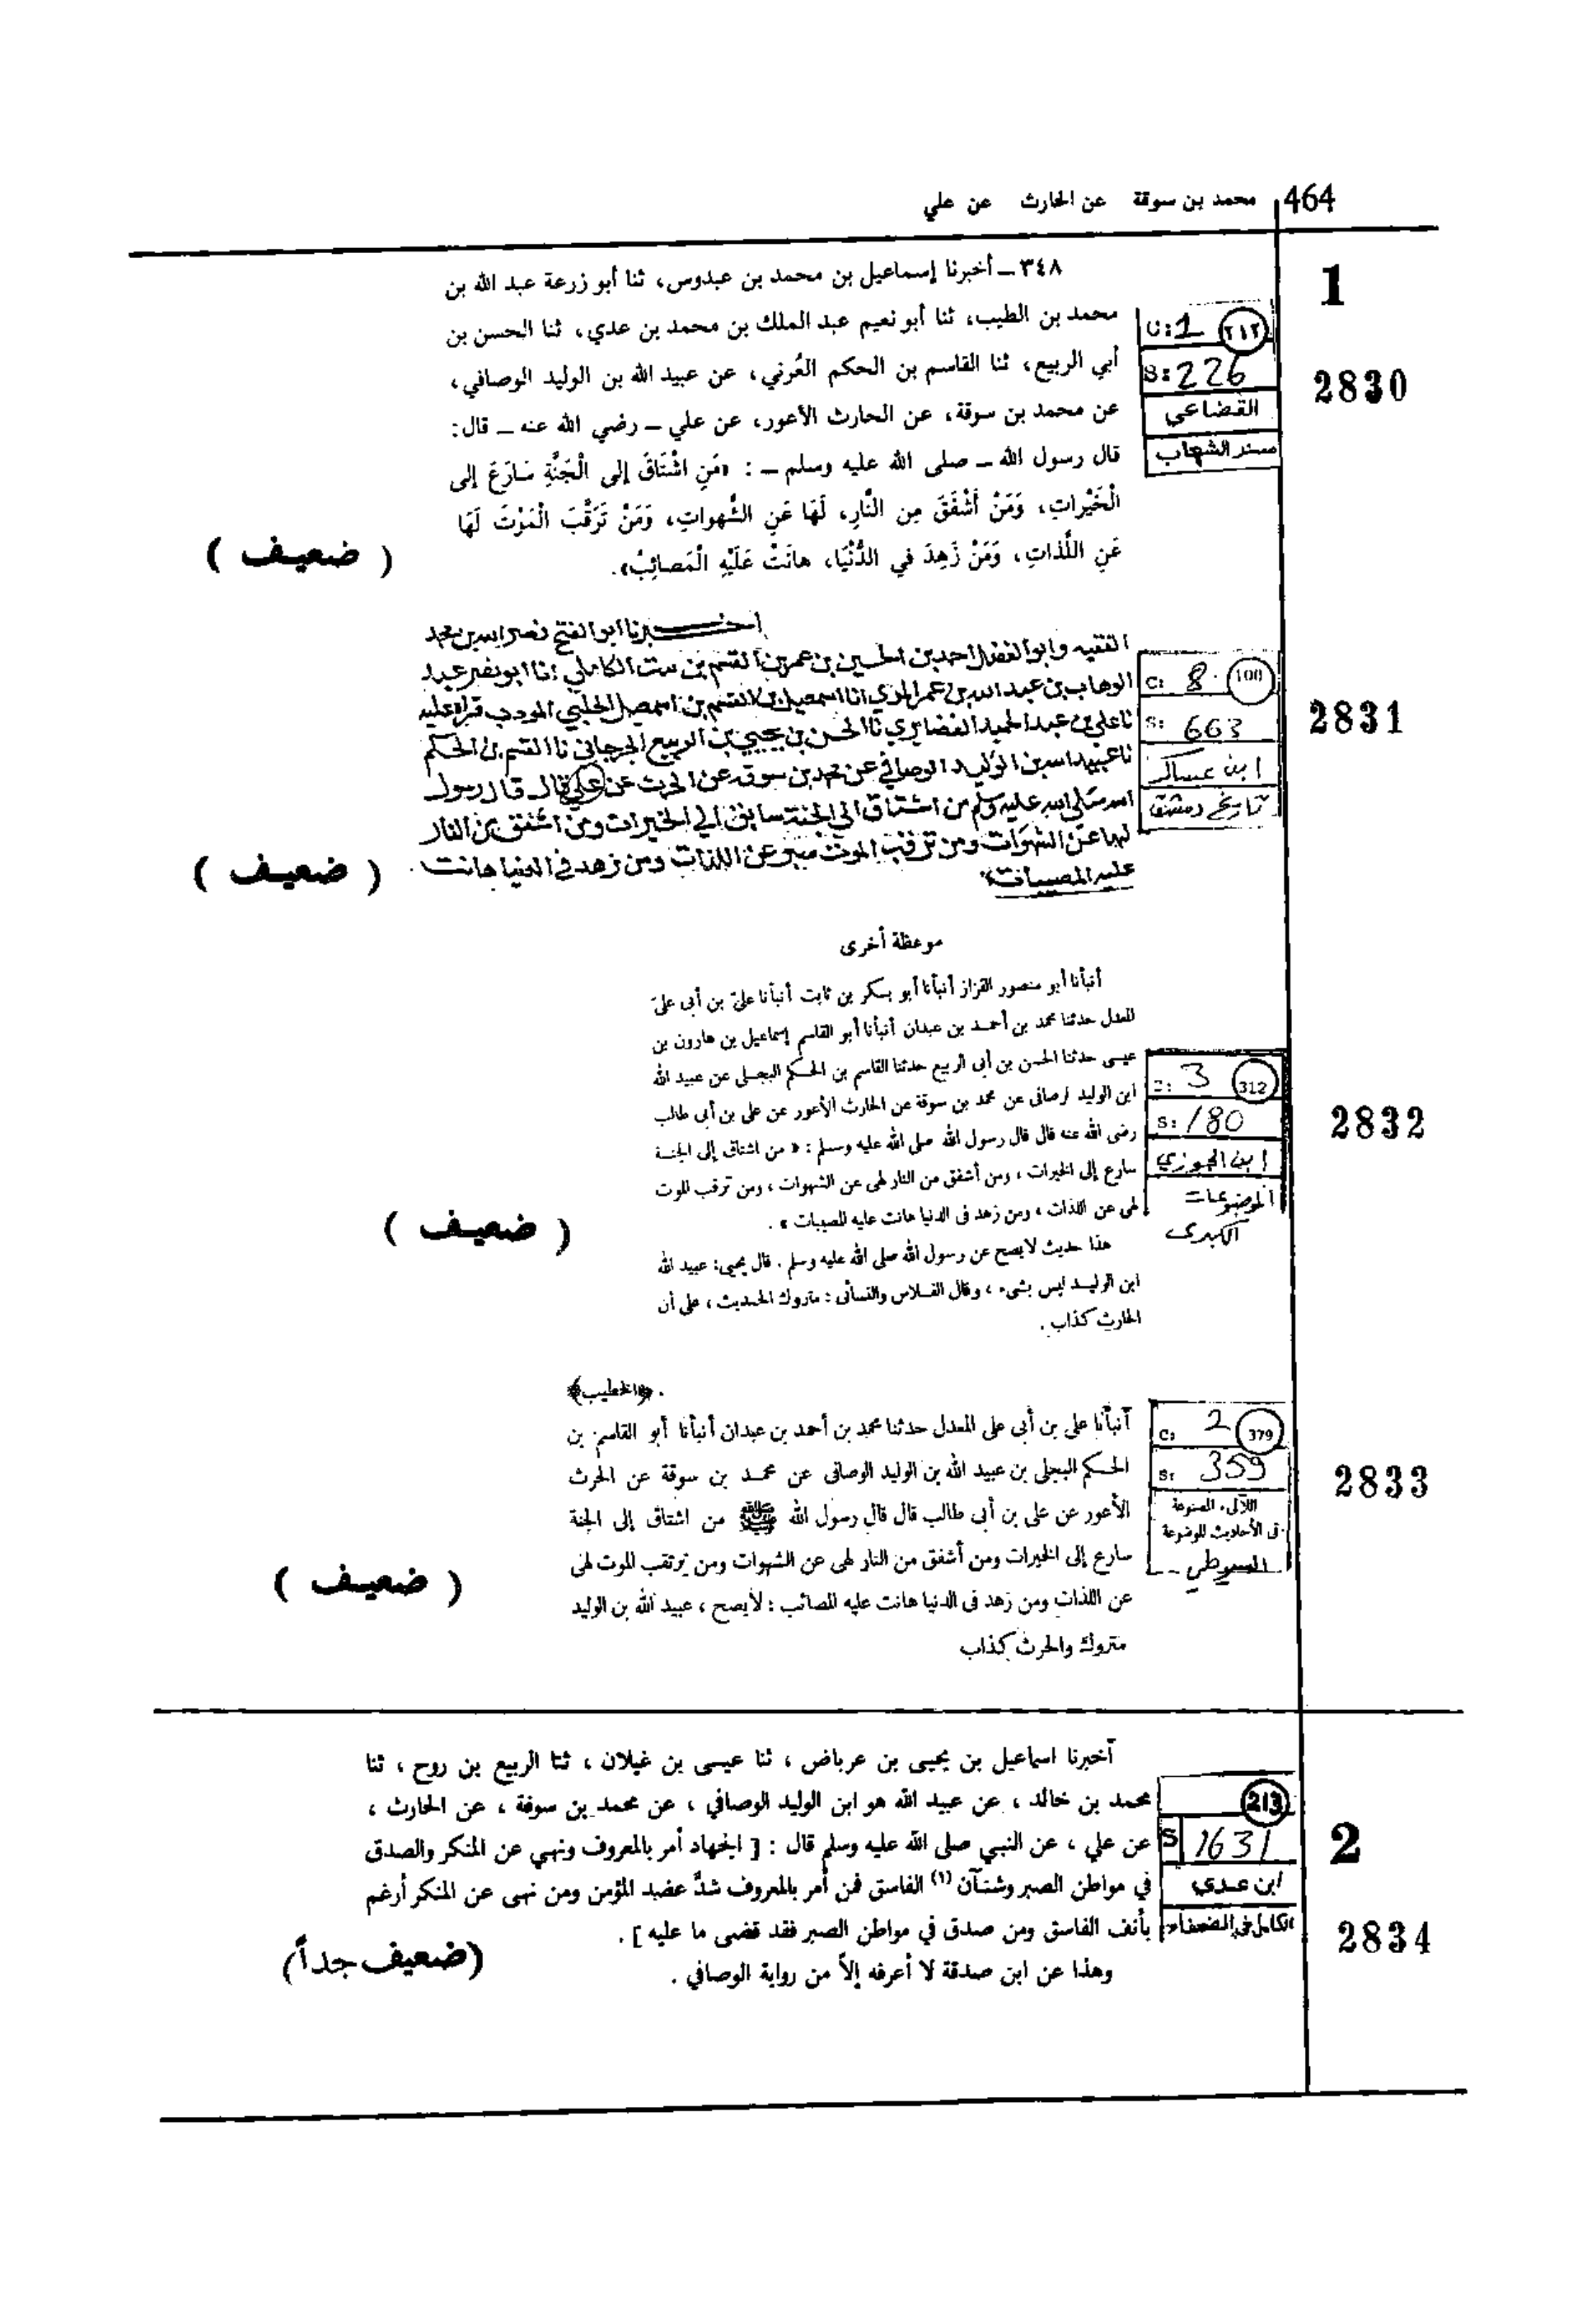 464 محمد بن سوقة عن الحارث عن علي
1
٣٤٨ ــ أخبرنا إسماعيل بن محمد بن عبدوس، ثنا أبو زرعة عبد الله بن
محمد بن الطيب، ثنا أبو نعيم عبد الملك بن محمد بن عدي، ثنا الحسن بن
أبي الربيع، ثنا القاسم بن الحكم العُرني، عن عبيد الله بن الوليد الوصافي،
عن محمد بن سوقة، عن الحارث الأعور، عن علي ــ رضي الله عنه ــ قال:
قال رسول الله ــ صلى الله عليه وسلم ــ : «مَنِ اشْتَاقَ إلى الْجَنَّةِ سَارَعَ إلى
الْخَيْراتِ، وَمَنْ أَشْفَقَ مِن النَّارِ، لَهَا عَنِ الشَّهواتِ، وَمَنْ تَرَقَّبَ الْمَوْتَ لَهَا
عَنِ اللَّذاتِ، وَمَنْ زَهِدَ في الدُّنْيَا، هانَتْ عَلَيْهِ الْمَصائِبُ».
C: 1 ٢١٢
S: 226
القضاعي
مسند الشهاب
2830
( ضعيف )
اخبرنا ابو الفتح نصر الله بن محمد
الفقيه وابو الفضل احمد بن الحسين بن عمر بن القسم بن الكاملي انا ابو نصر عبد
الوهاب بن عبد الله بن عمر المري انا اسمعيل بن القسم بن اسمعيل الحلبي المودب قراة عليه
نا علي بن عبد الحميد الغضايري نا الحسن بن يحيي بن الربيع الجرجاني نا القسم بن الحكم
نا عبيد الله بن الوليد الوصافي عن محمد بن سوقه عن الحرث عن علي قال قال رسول
الله صلى الله عليه وسلم من اشتاق الي الجنة سابق الي الخيرات ومن اشفق من النار
لها عن الشهوات ومن ترقب الموت صبر عن اللذات ومن زهد في الدنيا هانت
عليه المصيبات
C: 8 100
S: 663
ابن عساكر
تاريخ دمشق
2831
( ضعيف )
موعظة أخرى
أنبأنا أبو منصور القزاز أنبأنا أبو بكر بن ثابت أنبأنا علىّ بن أبى علىّ
المعدل حدثنا محمد بن أحمد بن عبدان أنبأنا أبو القاسم إسماعيل بن هارون بن
عيسى حدثنا الحسن بن أبى الربيع حدثنا القاسم بن الحكم البجلى عن عبيد الله
ابن الوليد لرصافى عن محمد بن سوقة عن الحارث الأعور عن على بن أبى طالب
رضى الله عنه قال قال رسول الله صلى الله عليه وسلم : « من اشتاق إلى الجنة
سارع إلى الخيرات ، ومن أشفق من النار لهى عن الشهوات ، ومن ترقب الموت
لهى عن اللذات ، ومن زهد فى الدنيا هانت عليه المصيبات » .
هذا حديث لا يصح عن رسول الله صلى الله عليه وسلم . قال يحيى: عبيد الله
ابن الوليد ليس بشىء ، وقال الفلاس والنسائى : متروك الحديث ، على أن
الحارث كذاب .
C: 3 312
S: 180
ابن الجوزي
الموضوعات
الكبرى
2832
( ضعيف )
. ﴿الخطيب﴾
أنبأنا على بن أبى على المعدل حدثنا محمد بن أحمد بن عبدان أنبأنا أبو القاسم بن
الحكم البجلى بن عبيد الله بن الوليد الوصافى عن محمد بن سوقة عن الحرث
الأعور عن على بن أبى طالب قال قال رسول الله ﷺ من اشتاق إلى الجنة
سارع إلى الخيرات ومن أشفق من النار لهى عن الشهوات ومن يرتقب الموت لهى
عن اللذات ومن زهد فى الدنيا هانت عليه المصائب : لا يصح ، عبيد الله بن الوليد
متروك والحرث كذاب
C: 2 379
S: 359
اللآلىء المصنوعة
فى الأحاديث الموضوعة
السيوطي
2833
( ضعيف )
أخبرنا اسماعيل بن يحيى بن عرباض ، ثنا عيسى بن غيلان ، ثنا الربيع بن روح ، ثنا
محمد بن خالد ، عن عبيد الله هو ابن الوليد الوصافي ، عن محمد بن سوقة ، عن الحارث ،
عن علي ، عن النبي صلى الله عليه وسلم قال : [ الجهاد أمر بالمعروف ونهي عن المنكر والصدق
في مواطن الصبر وشنآن (١) الفاسق فمن أمر بالمعروف شدَّ عضد المؤمن ومن نهى عن المنكر أرغم
بأنف الفاسق ومن صدق في مواطن الصبر فقد قضى ما عليه ] .
وهذا عن ابن صدقة لا أعرفه إلاّ من رواية الوصافي .
213
S 1631
ابن عدي
الكامل في الضعفاء
2
2834
(ضعيف جداً)